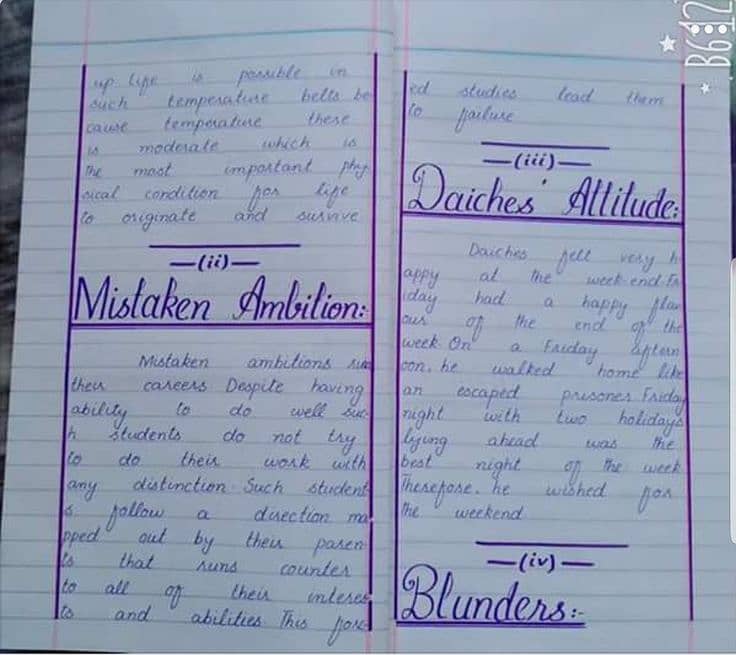 up life is possible in
such temperature belts be
cause temperature there
is moderate which is
the most important phy
sical condition for life
to originate and survive
—(ii)—
Mistaken Ambition:-
Mistaken ambitions
their careers Despite having
ability to do well suc
h students do not try
to do their work with
any distinction. Such student
s follow a direction ma
pped out by their paren
ts that runs counter
to all of their interes
ts and abilities. This forc
ed studies lead them
to failure
—(iii)—
Daiches' Attitude:
Daiches felt very h
appy at the week-end. Fr
iday had a happy flav
our of the end of the
week. On a Friday aftern
oon, he walked home like
an escaped prisoner. Friday
night with two holidays
lying ahead was the
best night of the week
Therefore, he wished for
the weekend
—(iv)—
Blunders:-
B612